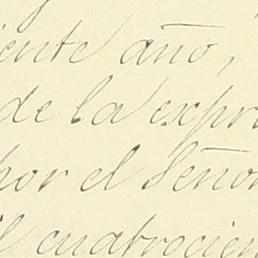 iente año,
de la expr
por el Señor
il cuatrocien